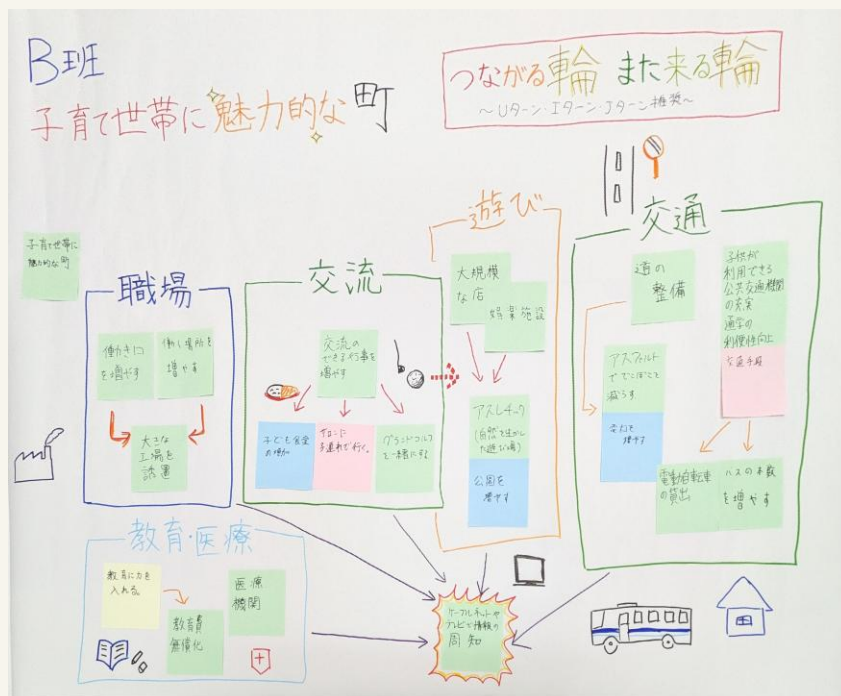 B班
子育て世帯に魅力的な町
つながる輪 また来る輪
～Uターン・Iターン・Jターン推奨～
子育て世帯に
魅力的な町
職場
働き口
を増やす
働く場所を
増やす
大きな
工場を
誘置
交流
交流の
できる行事を
増やす
子ども食堂
の増加
サロンに
子連れで行く。
グランドゴルフ
を一緒にする
遊び
大規模
な店
娯楽施設
アスレチック
(自然を生かし
た遊び場)
公園を
増やす
交通
道の
整備
アスファルト
ででこぼこを
減らす
を増やす
子供が
利用できる
公共交通機関
の充実
通学の
利便性向上
交通手段
電動自転車
の貸出
バスの本数
を増やす
教育・医療
教育に力を
入れる。
教育費
無償化
医療
機関
ケーブルネットや
テレビで情報の
周知